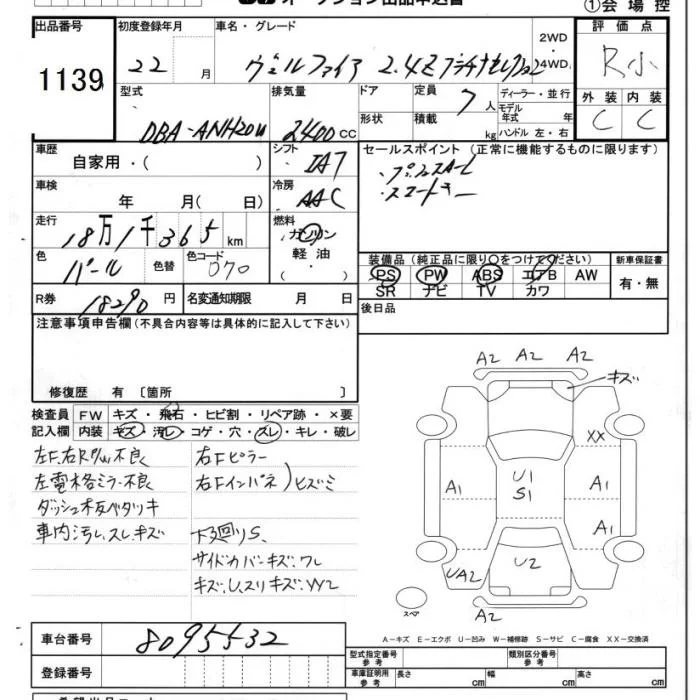 オークション出品申込書
①会場控
出品番号
1139
初度登録年月
22 月
車名・グレード
ヴェルファイア 2.4Z プラチナセレクション
2WD・4WD
評価点
R小
外装 内装
C C
型式
DBA-ANH20W
排気量
2400 CC
ドア
形状
定員
7人
積載
kg
ディーラー・並行
モデル年式 年
ハンドル 左・右
車歴
自家用・( )
シフト
IA7
セールスポイント (正常に機能するものに限ります)
・プッシュスタート
・スマートキー
車検
年 月( 日)
冷房
AAC
走行
18万1千365km
燃料
ガソリン
軽油
・( )
色
パール
色替
色コード
070
装備品(純正品に限り○をつけてください)
PS PW ABS エアB AW
SR ナビ TV カワ
新車保証書
有・無
R券
18290円
名変通知期限 月 日
後日品
注意事項申告欄(不具合内容等は具体的に記入して下さい)
修復歴 有 〔箇所 〕
検査員記入欄
FW キズ・飛石・ヒビ割・リペア跡・×要
内装 キズ・汚レ・コゲ・穴・スレ・キレ・破レ
左F.右RP/W不良
左電格ミラー不良
ダッシュ板ベタツキ
車内汚レ.スレ.キズ
右Fピラー
右Fインパネ)ヒズミ
下廻りS.
サイドカバーキズ.ワレ
A2 A2 A2
キズ
XX
U1
S1
A1 A1
A1
UA2
U2
A2
スペア
A-キズ E-エクボ U-凹み W-補修跡 S-サビ C-腐食 XX-交換済
車台番号
8095532
登録番号
型式指定番号
参考
類別区分番号
参考
車庫証明用
参考
長さ cm
幅 cm
高さ cm